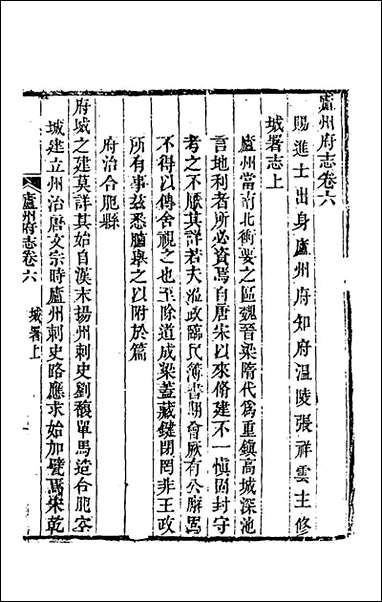 廬州府志卷六
賜進士出身廬州府知府温陵張祥雲主修
城署志上
廬州當南北衝要之區魏晉梁隋代爲重鎮高城深池
言地利者所必資焉自唐宋以來脩建不一愼固封守
考之不厭其詳若夫涖政臨民簿書期會厥有公廨焉
不得以傳舍視之也至除道成梁蓋藏鍵閉罔非王政
所有事茲悉臚舉之以附於篇
府治合肥縣
府城之建莫詳其始自漢末揚州刺史劉馥單馬造合肥空
城建立州治唐文宗時廬州刺史路應求始加甓焉宋乾
廬州府志卷六
城署上
一